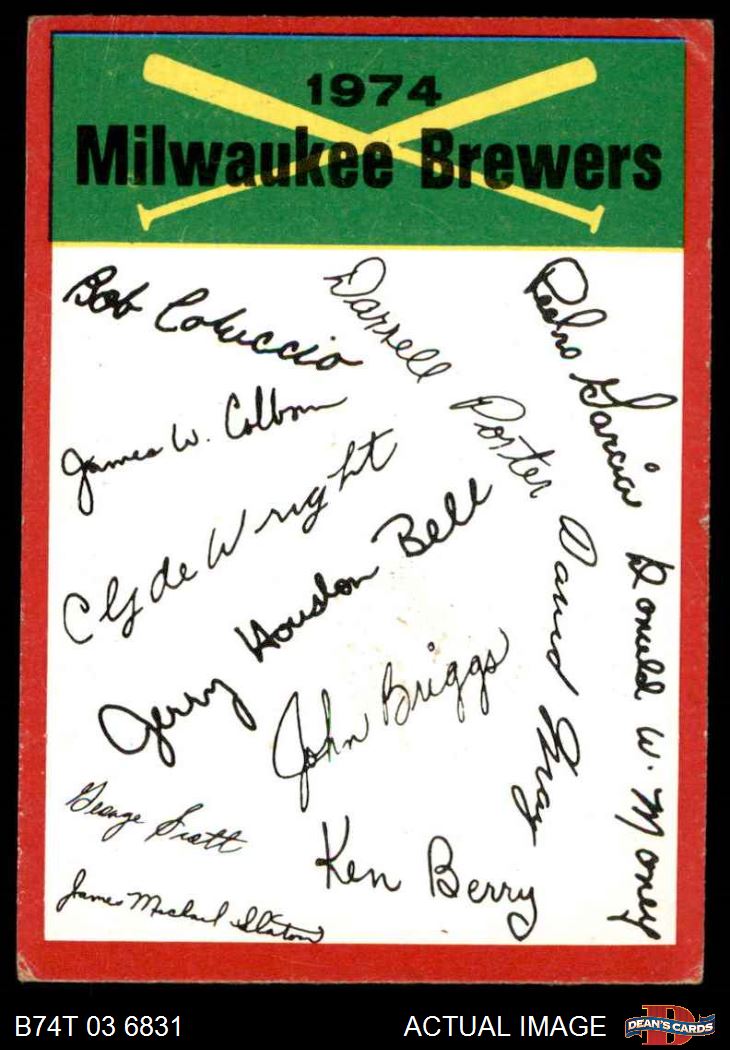 1974
Milwaukee Brewers
Bob Coluccio
Darrell Porter
Pedro Garcia
James W. Colborn
Clyde Wright
Jerry Houston Bell
David Gray
Donald W. Money
John Briggs
George Scott
Ken Berry
James Michael Slaton
B74T 03 6831
ACTUAL IMAGE
D
DEAN'S CARDS